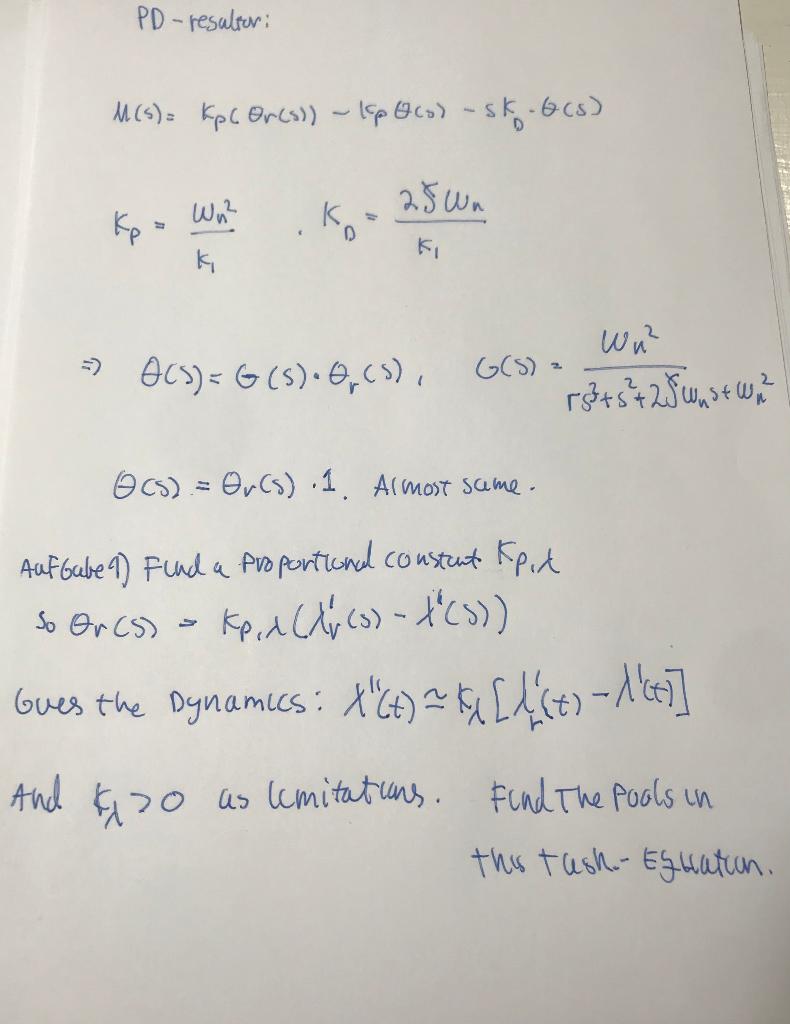 PD-resultur:
M(s) = Kp(θr(s)) - Kpθ(s) - sK_D · θ(s)
Kp = ωn²/K₁ . K_D = 2ζωn/K₁
⇒ θ(s) = G(s) · θr(s), G(s) = ωn²/(rs³+s²+2ζωns+ωn²)
θ(s) = θr(s) · 1. Almost same.
Aufgabe 1) Find a Proportional constant Kp,λ
so θr(s) = Kp,λ(λ'r(s) - λ'(s))
Gives the Dynamics: λ''(t) ≃ Kλ[λ'r(t) - λ'(t)]
And Kλ>0 as limitations. Find The Pools in
this task- Equation.